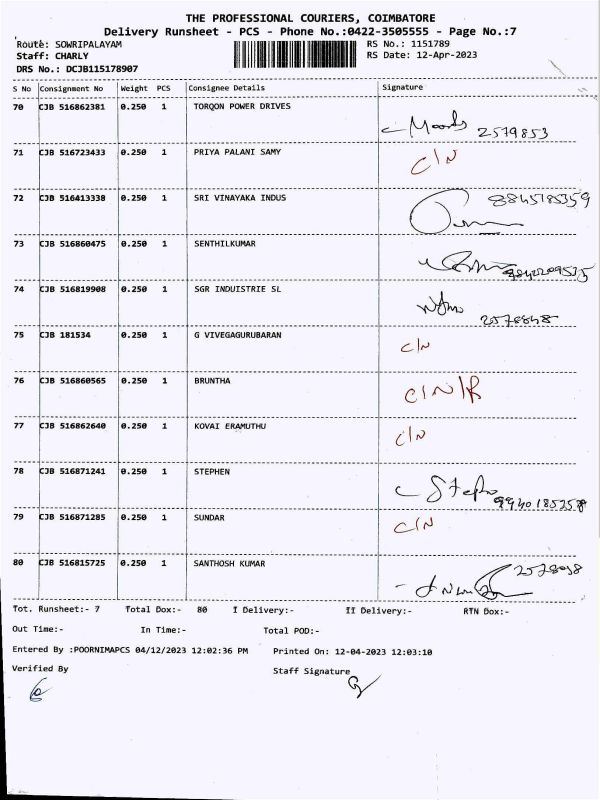 THE PROFESSIONAL COURIERS, COIMBATORE
Delivery Runsheet - PCS - Phone No.:0422-3505555 - Page No.:7
Route: SOWRIPALAYAM RS No.: 1151789
Staff: CHARLY RS Date: 12-Apr-2023
DRS No.: DCJB115178907
S No Consignment No Weight PCS Consignee Details Signature
70 CJB 516862381 0.250 1 TORQON POWER DRIVES
2579853
71 CJB 516723433 0.250 1 PRIYA PALANI SAMY C/N
72 CJB 516413338 0.250 1 SRI VINAYAKA INDUS
73 CJB 516860475 0.250 1 SENTHILKUMAR
74 CJB 516819908 0.250 1 SGR INDUISTRIE SL
75 CJB 181534 0.250 1 G VIVEGAGURUBARAN C/N
76 CJB 516860565 0.250 1 BRUNTHA C/N/R
77 CJB 516862640 0.250 1 KOVAI ERAMUTHU C/N
78 CJB 516871241 0.250 1 STEPHEN
79 CJB 516871285 0.250 1 SUNDAR C/N
80 CJB 516815725 0.250 1 SANTHOSH KUMAR
Tot. Runsheet:- 7 Total Dox:- 80 I Delivery:- II Delivery:- RTN Dox:-
Out Time:- In Time:- Total POD:-
Entered By :POORNIMAPCS 04/12/2023 12:02:36 PM Printed On: 12-04-2023 12:03:10
Verified By Staff Signature